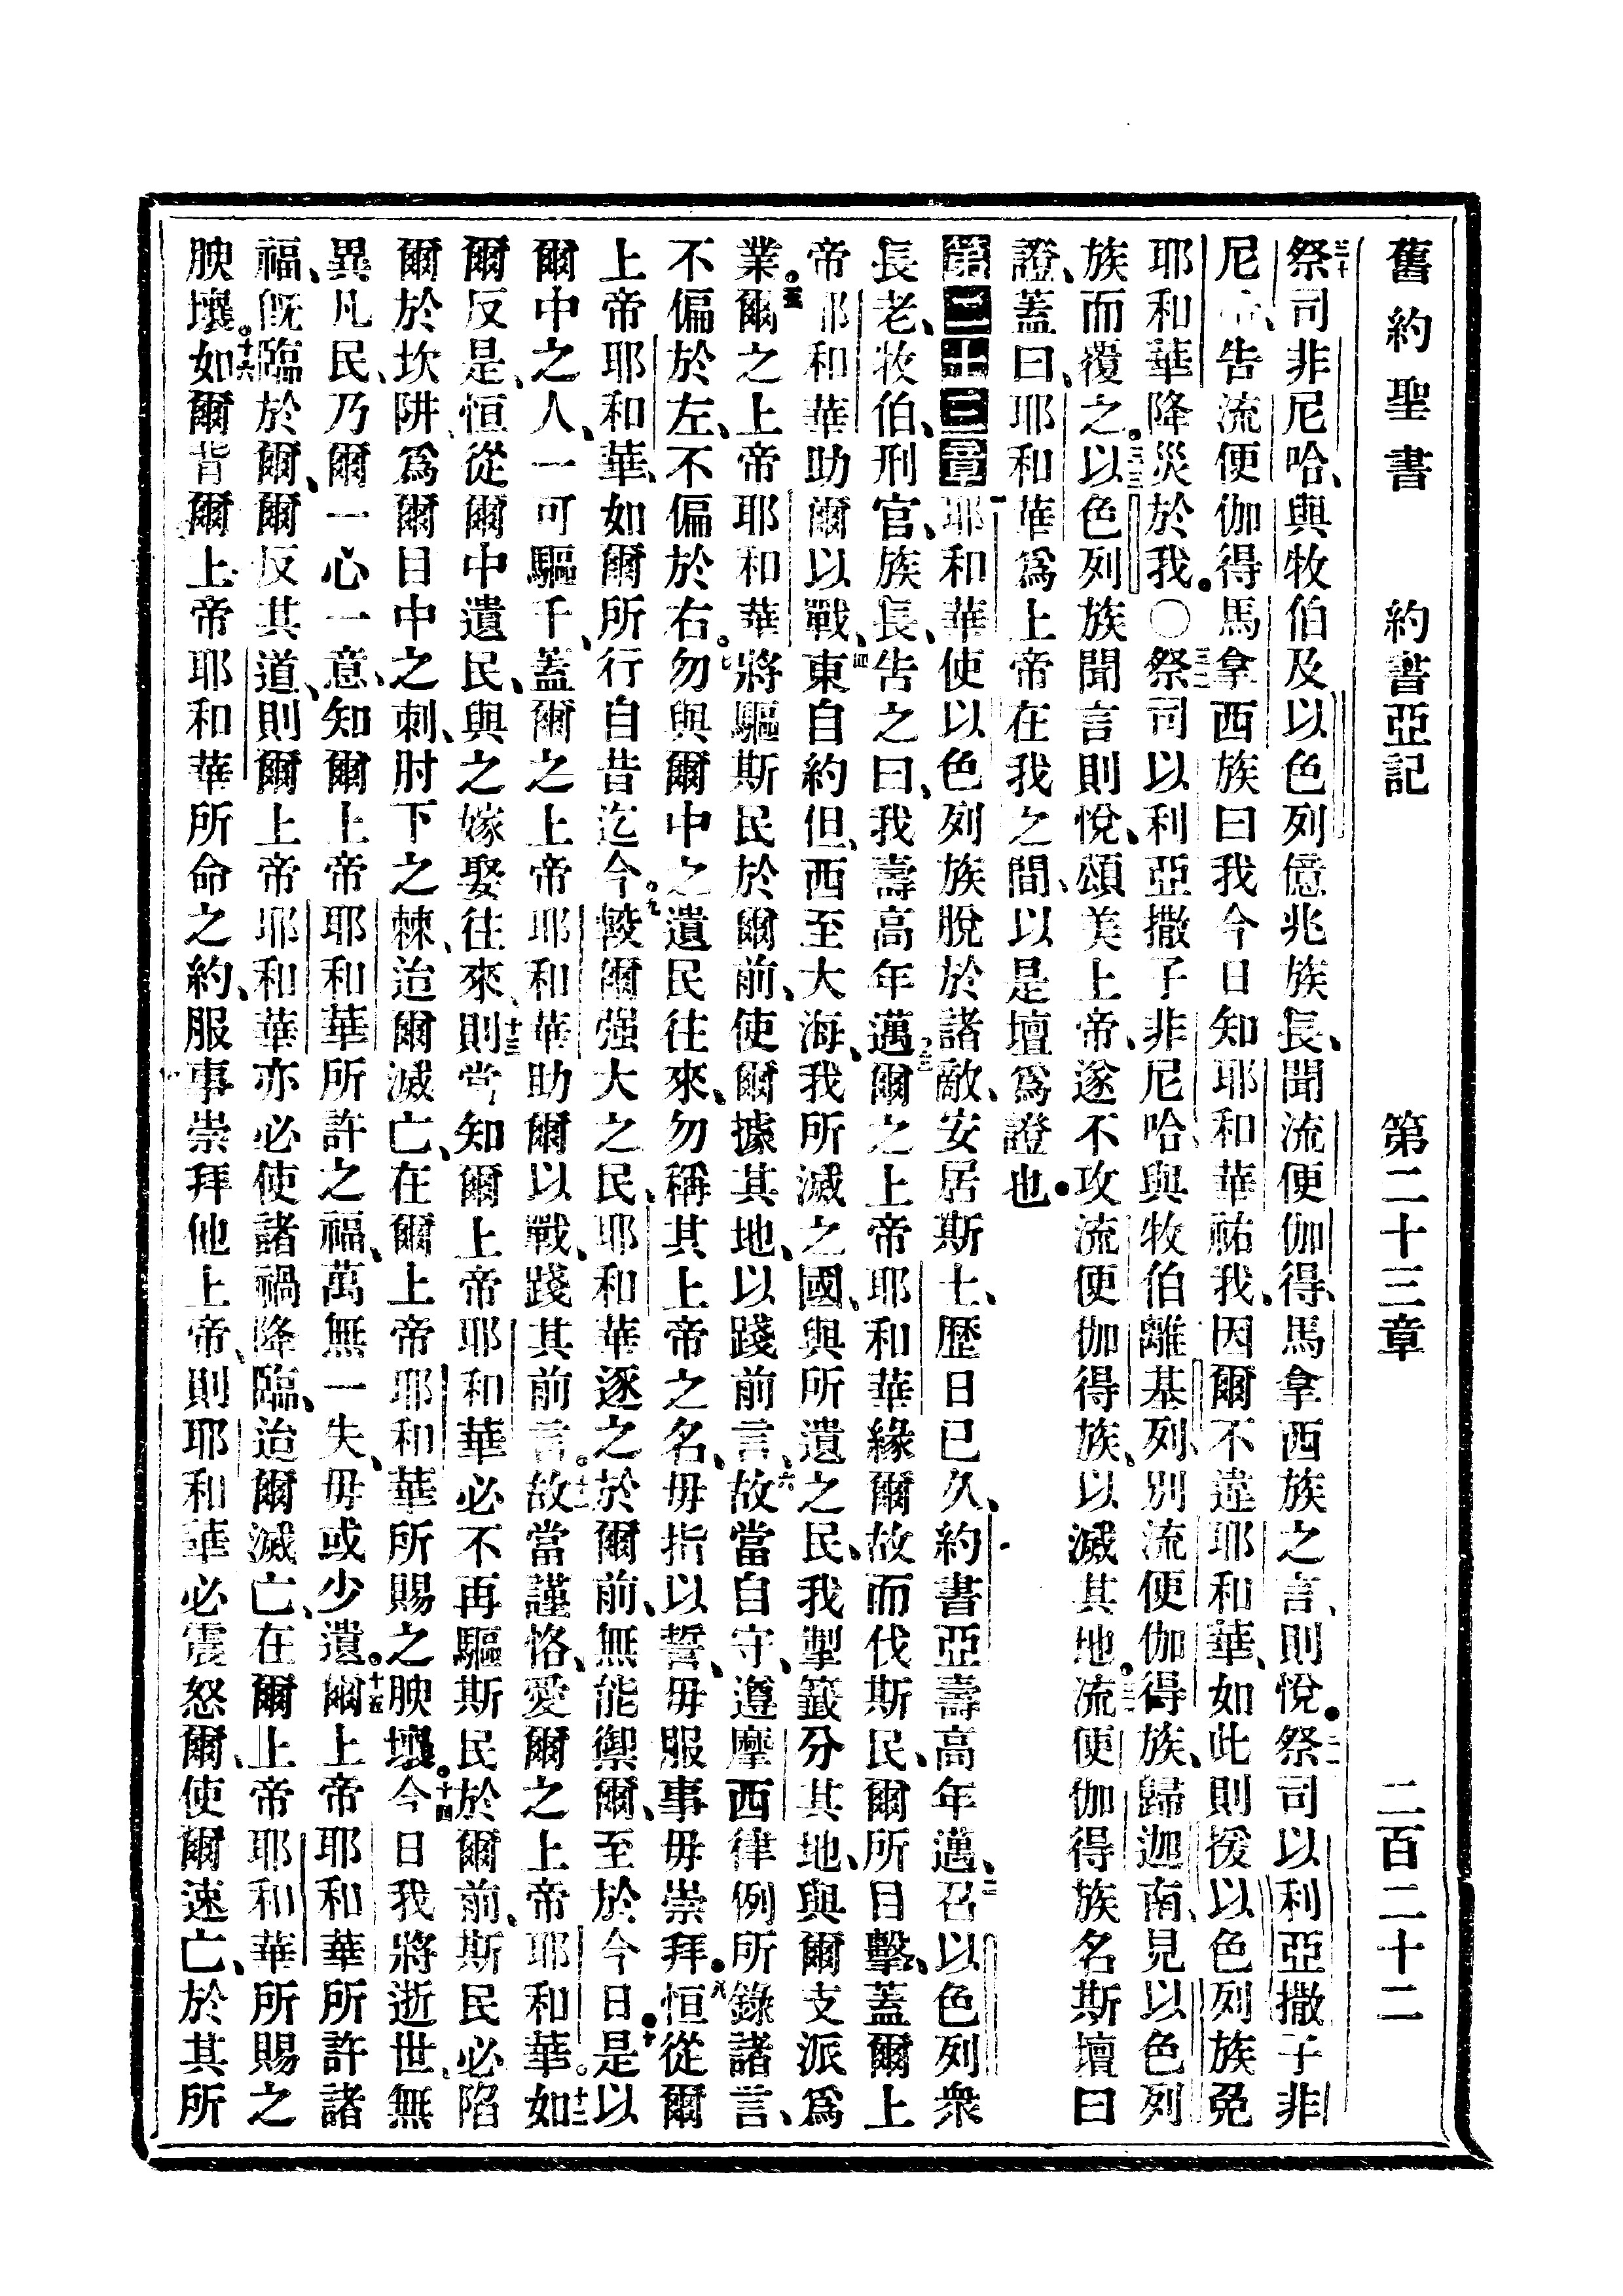 舊約聖書 約書亞記 第二十三章 二百二十二
三十祭司非尼哈、與牧伯及以色列億兆族長、聞流便伽得、馬拿西族之言、則悅。三一祭司以利亞撒子非
尼哈、告流便伽得馬拿西族曰我今日知耶和華祐我、因爾不違耶和華、如此則援以色列族免
耶和華降災於我。〇三二祭司以利亞撒子非尼哈、與牧伯離基列、別流便伽得族、歸迦南、見以色列
族而覆之。三三以色列族聞言則悅、頌美上帝、遂不攻流便伽得族、以滅其地。三四流便伽得族名斯壇曰
證、蓋曰、耶和華爲上帝在我之間、以是壇爲證也。
第二十三章一耶和華使以色列族脫於諸敵、安居斯土、歷日已久、約書亞壽高年邁、二召以色列衆
長老、牧伯、刑官、族長、告之曰、我壽高年邁、三爾之上帝耶和華緣爾故而伐斯民、爾所目擊、蓋爾上
帝耶和華助爾以戰、四東自約但、西至大海、我所滅之國、與所遺之民、我掣籤分其地、與爾支派爲
業。五爾之上帝耶和華將驅斯民於爾前、使爾據其地、以踐前言、六故當自守、遵摩西律例所錄諸言、
不偏於左、不偏於右。七勿與爾中之遺民往來、勿稱其上帝之名、毋指以誓、毋服事毋崇拜。八恒從爾
上帝耶和華、如爾所行自昔迄今。九較爾强大之民、耶和華逐之於爾前、無能禦爾、至於今日。十是以
爾中之人、一可驅千、蓋爾之上帝耶和華助爾以戰、踐其前言。十一故當謹恪、愛爾之上帝耶和華。十二如
爾反是、恒從爾中遺民、與之嫁娶往來、十三則當知爾上帝耶和華必不再驅斯民於爾前、斯民必陷
爾於坎阱、爲爾目中之刺、肘下之棘、迨爾滅亡、在爾上帝耶和華所賜之腴壤。十四今日我將逝世、無
異凡民、乃爾一心一意、知爾上帝耶和華所許之福、萬無一失、毋或少遺。十五爾上帝耶和華所許諸
福、旣臨於爾、爾反其道、則爾上帝耶和華亦必使諸禍降臨、迨爾滅亡、在爾上帝耶和華所賜之
腴壤。十六如爾背爾上帝耶和華所命之約、服事崇拜他上帝、則耶和華必震怒爾、使爾速亡、於其所